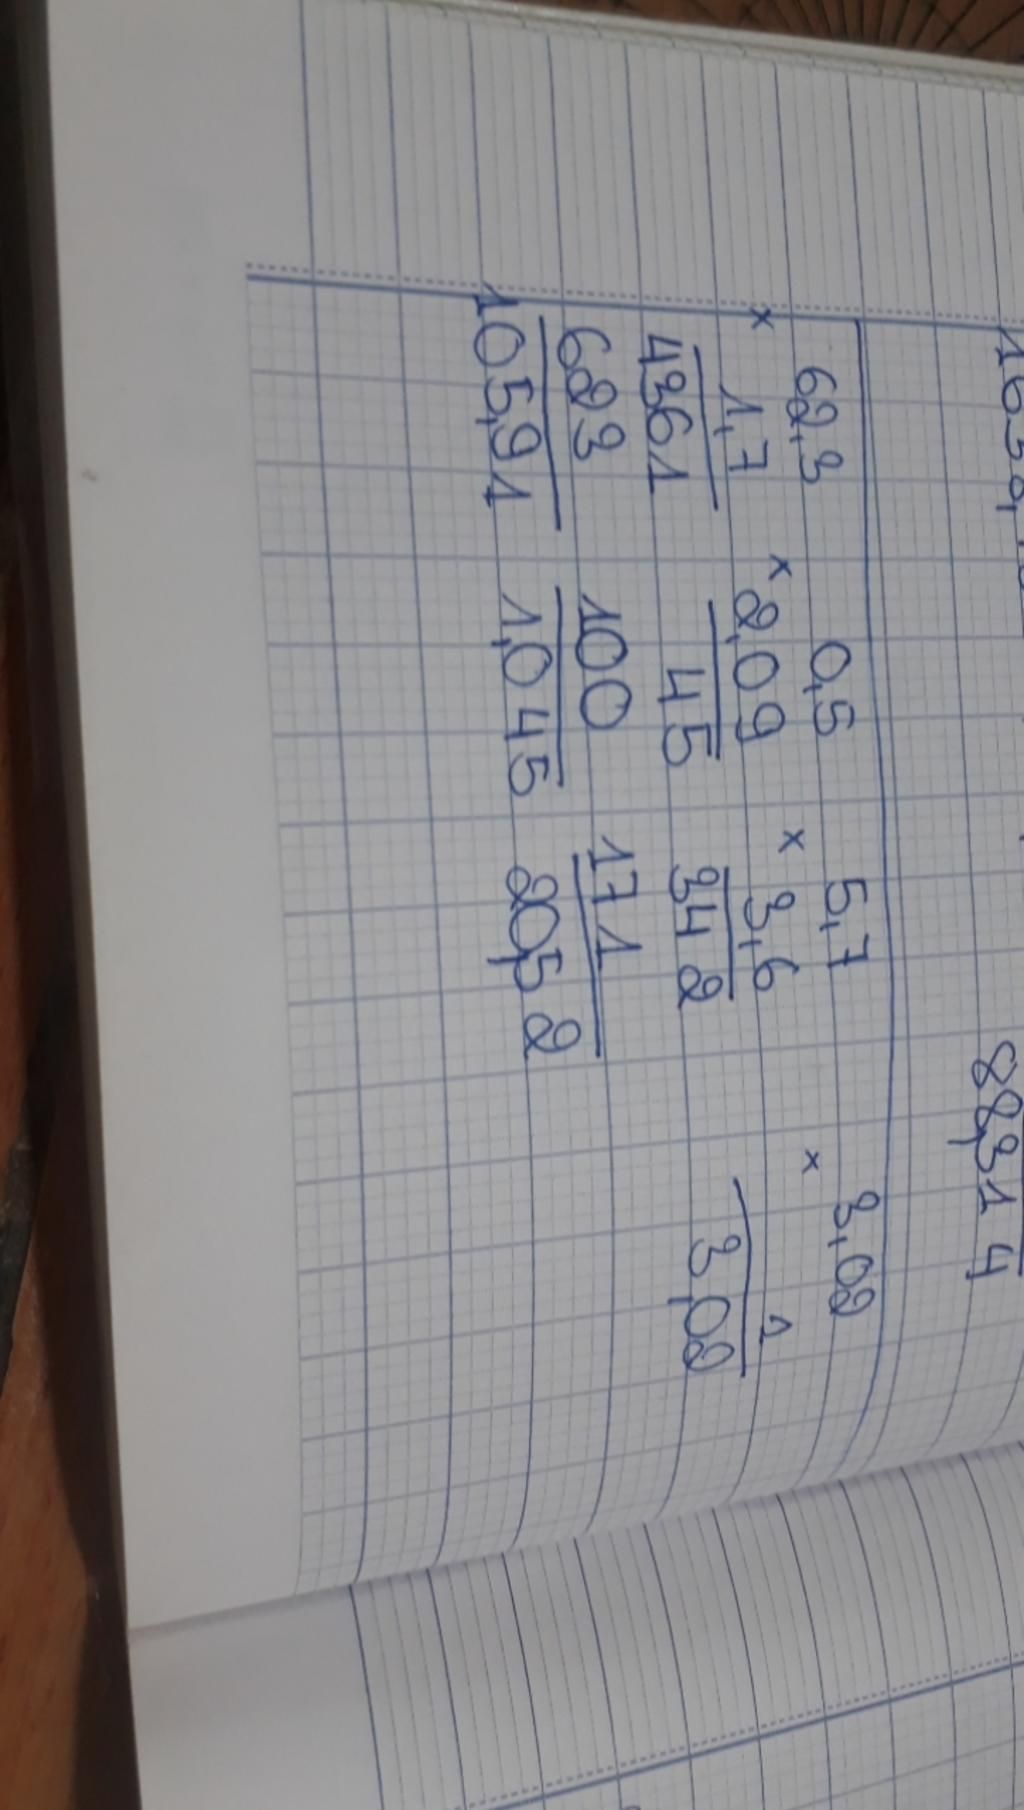 88,314
62,3 0,5 5,7 3,02
× 1,7 × 2,09 × 3,6 × 1
4361 45 342 3,02
623 100 171
105,91 1,045 20,52